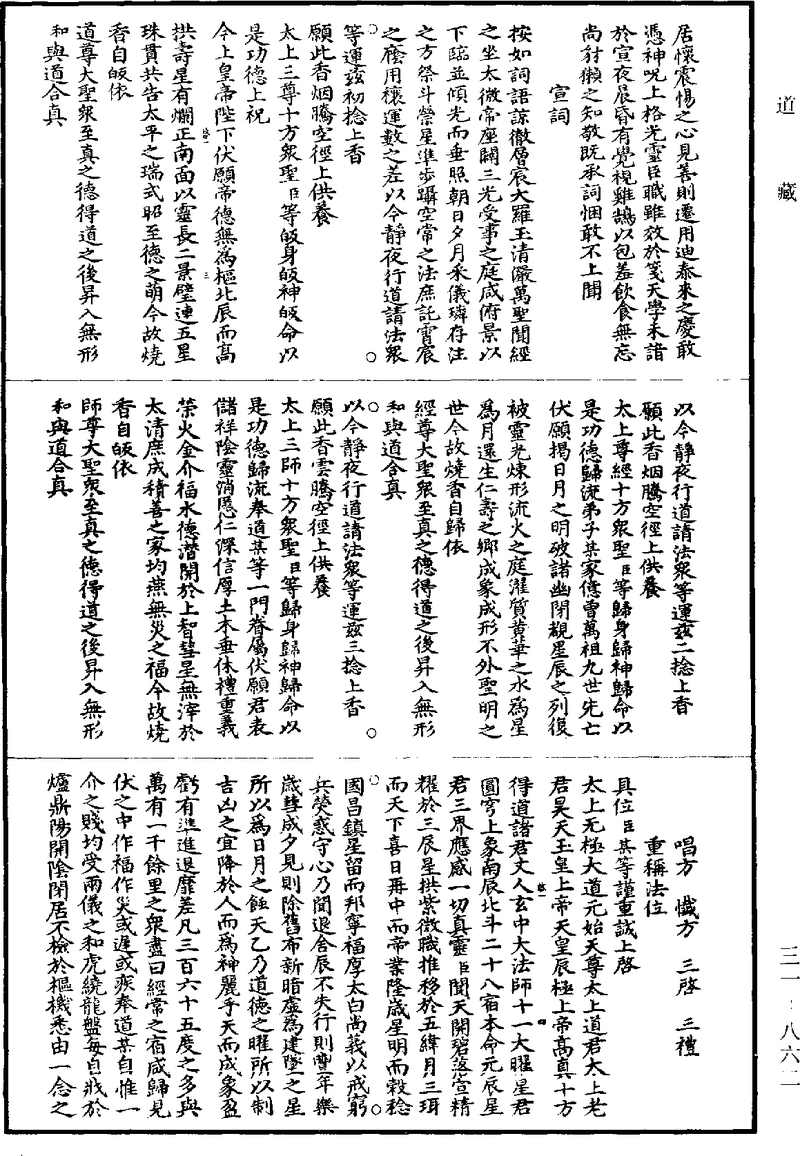 道藏
居懷震惕之心見善則遷用迪泰來之慶敢
憑神呪上格光靈臣職雖效於箋天學未諳
於宣夜晨昏有覺視雞鵠以包羞飲食無忘
尚豺獺之知敬既承詞悃敢不上聞
宣詞
按如詞語諒徹層宸大羅玉清嚴萬聖聞經
之坐太微帝座闢三光受事之庭咸俯景以
下臨並傾光而垂照朝日夕月永儀璘存注
之方祭斗禜星準步躡空常之法庶託霄宸
之麾用禳運數之差以今靜夜行道請法衆
等運兹初捻上香
願此香烟騰空徑上供養
太上三尊十方衆聖臣等皈身皈神皈命以
是功德上祝
今上皇帝陛下伏願帝德無為樞北辰而高
拱壽星有爛正南面以靈長二景璧連五星
珠貫共告太平之瑞式昭至德之萌今故燒
香自皈依
道尊大聖衆至真之德得道之後昇入無形
和與道合真
以今靜夜行道請法衆等運兹二捻上香
願此香烟騰空徑上供養
太上尊經十方衆聖臣等歸身歸神歸命以
是功德歸流弟子某家億曾萬祖九世先亡
伏願揭日月之明破諸幽閉覩星辰之列復
被靈光煉形流火之庭濯質黃華之水為星
為月還生仁壽之鄉成象成形不外聖明之
世今故燒香自歸依
經尊大聖衆至真之德得道之後昇入無形
和與道合真
以今靜夜行道請法衆等運兹三捻上香
願此香雲騰空徑上供養
太上三師十方衆聖臣等歸身歸神歸命以
是功德歸流奉道某等一門眷屬伏願君表
儲祥陰靈消慝仁深信厚土木垂休禮重義
榮火金介福水德潛開於上智彗星無滓於
太清庶成積善之家均燕無災之福今故燒
香自皈依
師尊大聖衆至真之德得道之後昇入無形
和與道合真
唱方 懺方 三啓 三禮
重稱法位
具位臣某等謹重誠上啓
太上无極大道元始天尊太上道君太上老
君昊天玉皇上帝天皇辰極上帝高真十方
得道諸君丈人玄中大法師十一大曜星君
圓穹上象南辰北斗二十八宿本命元辰星
君三界應感一切真靈臣聞天開碧落宣精
耀於三辰星拱紫微職推移於五緯月三珥
而天下喜日再中而帝業隆歲星明而穀稔
國昌鎮星留而邦寧福厚太白尚義以戒窮
兵熒惑守心乃聞退舍辰不失行則豐年樂
歲彗成夕見則除舊布新暗虛為建墜之星
所以為日月之蝕天乙乃道德之曜所以制
吉凶之宜降於人而為神麗乎天而成象盈
虧有準進退靡差凡三百六十五度之多與
萬有一千餘里之衆盡曰經常之宿咸歸見
伏之中作福作災或遲或疾奉道某自惟一
介之賤均受兩儀之和虎繞龍盤每自戕於
爐鼎陽開陰閉居不檢於樞機悉由一念之
三一:八六二